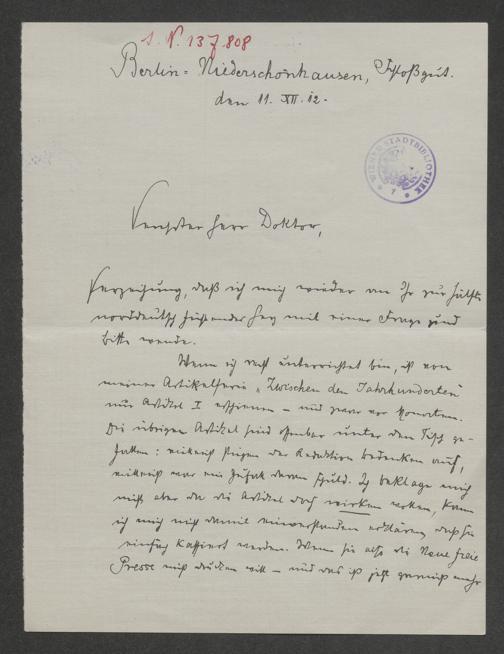 I. N. 137.808
Berlin-Niederschönhausen, Schloßgut.
den 11. XII. 12.
WIENER STADTBIBLIOTHEK
Verehrter Herr Doktor,
Verzeihung, daß ich mich wieder an Ihr zur Hälfte
norddeutsch fühlendes Herz mit einer Frage und
Bitte wende.
Wenn ich recht unterrichtet bin, ist von
meiner Artikelserie „Zwischen den Jahrhunderten"
nur Artikel I erschienen – und zwar vor Monaten.
Die übrigen Artikel sind offenbar unter den Tisch ge-
fallen: vielleicht stiegen der Redaktion Bedenken auf,
vielleicht war ein Zufall daran schuld. Ich beklage mich
nicht aber da die Artikel doch wirken wollen, kann
ich mich nicht damit einverstanden erklären, daß sie
einfach kassiert werden. Wenn sie also die Neue Freie
Presse nicht drucken will – und das ist jetzt gewiß mehr